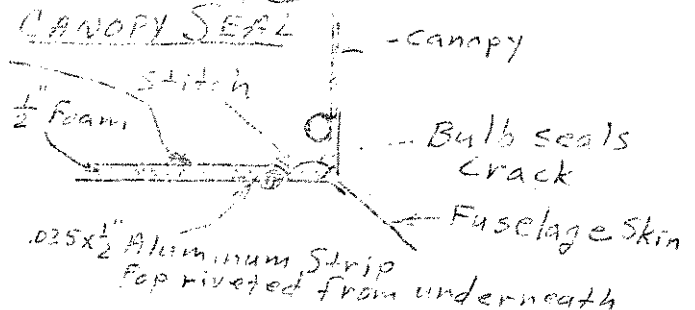 CANOPY SEAL
canopy
stitch
1/2" Foam
Bulb seals
Crack
Fuselage Skin
.025x1/2" Aluminum Strip
Pop riveted from underneath